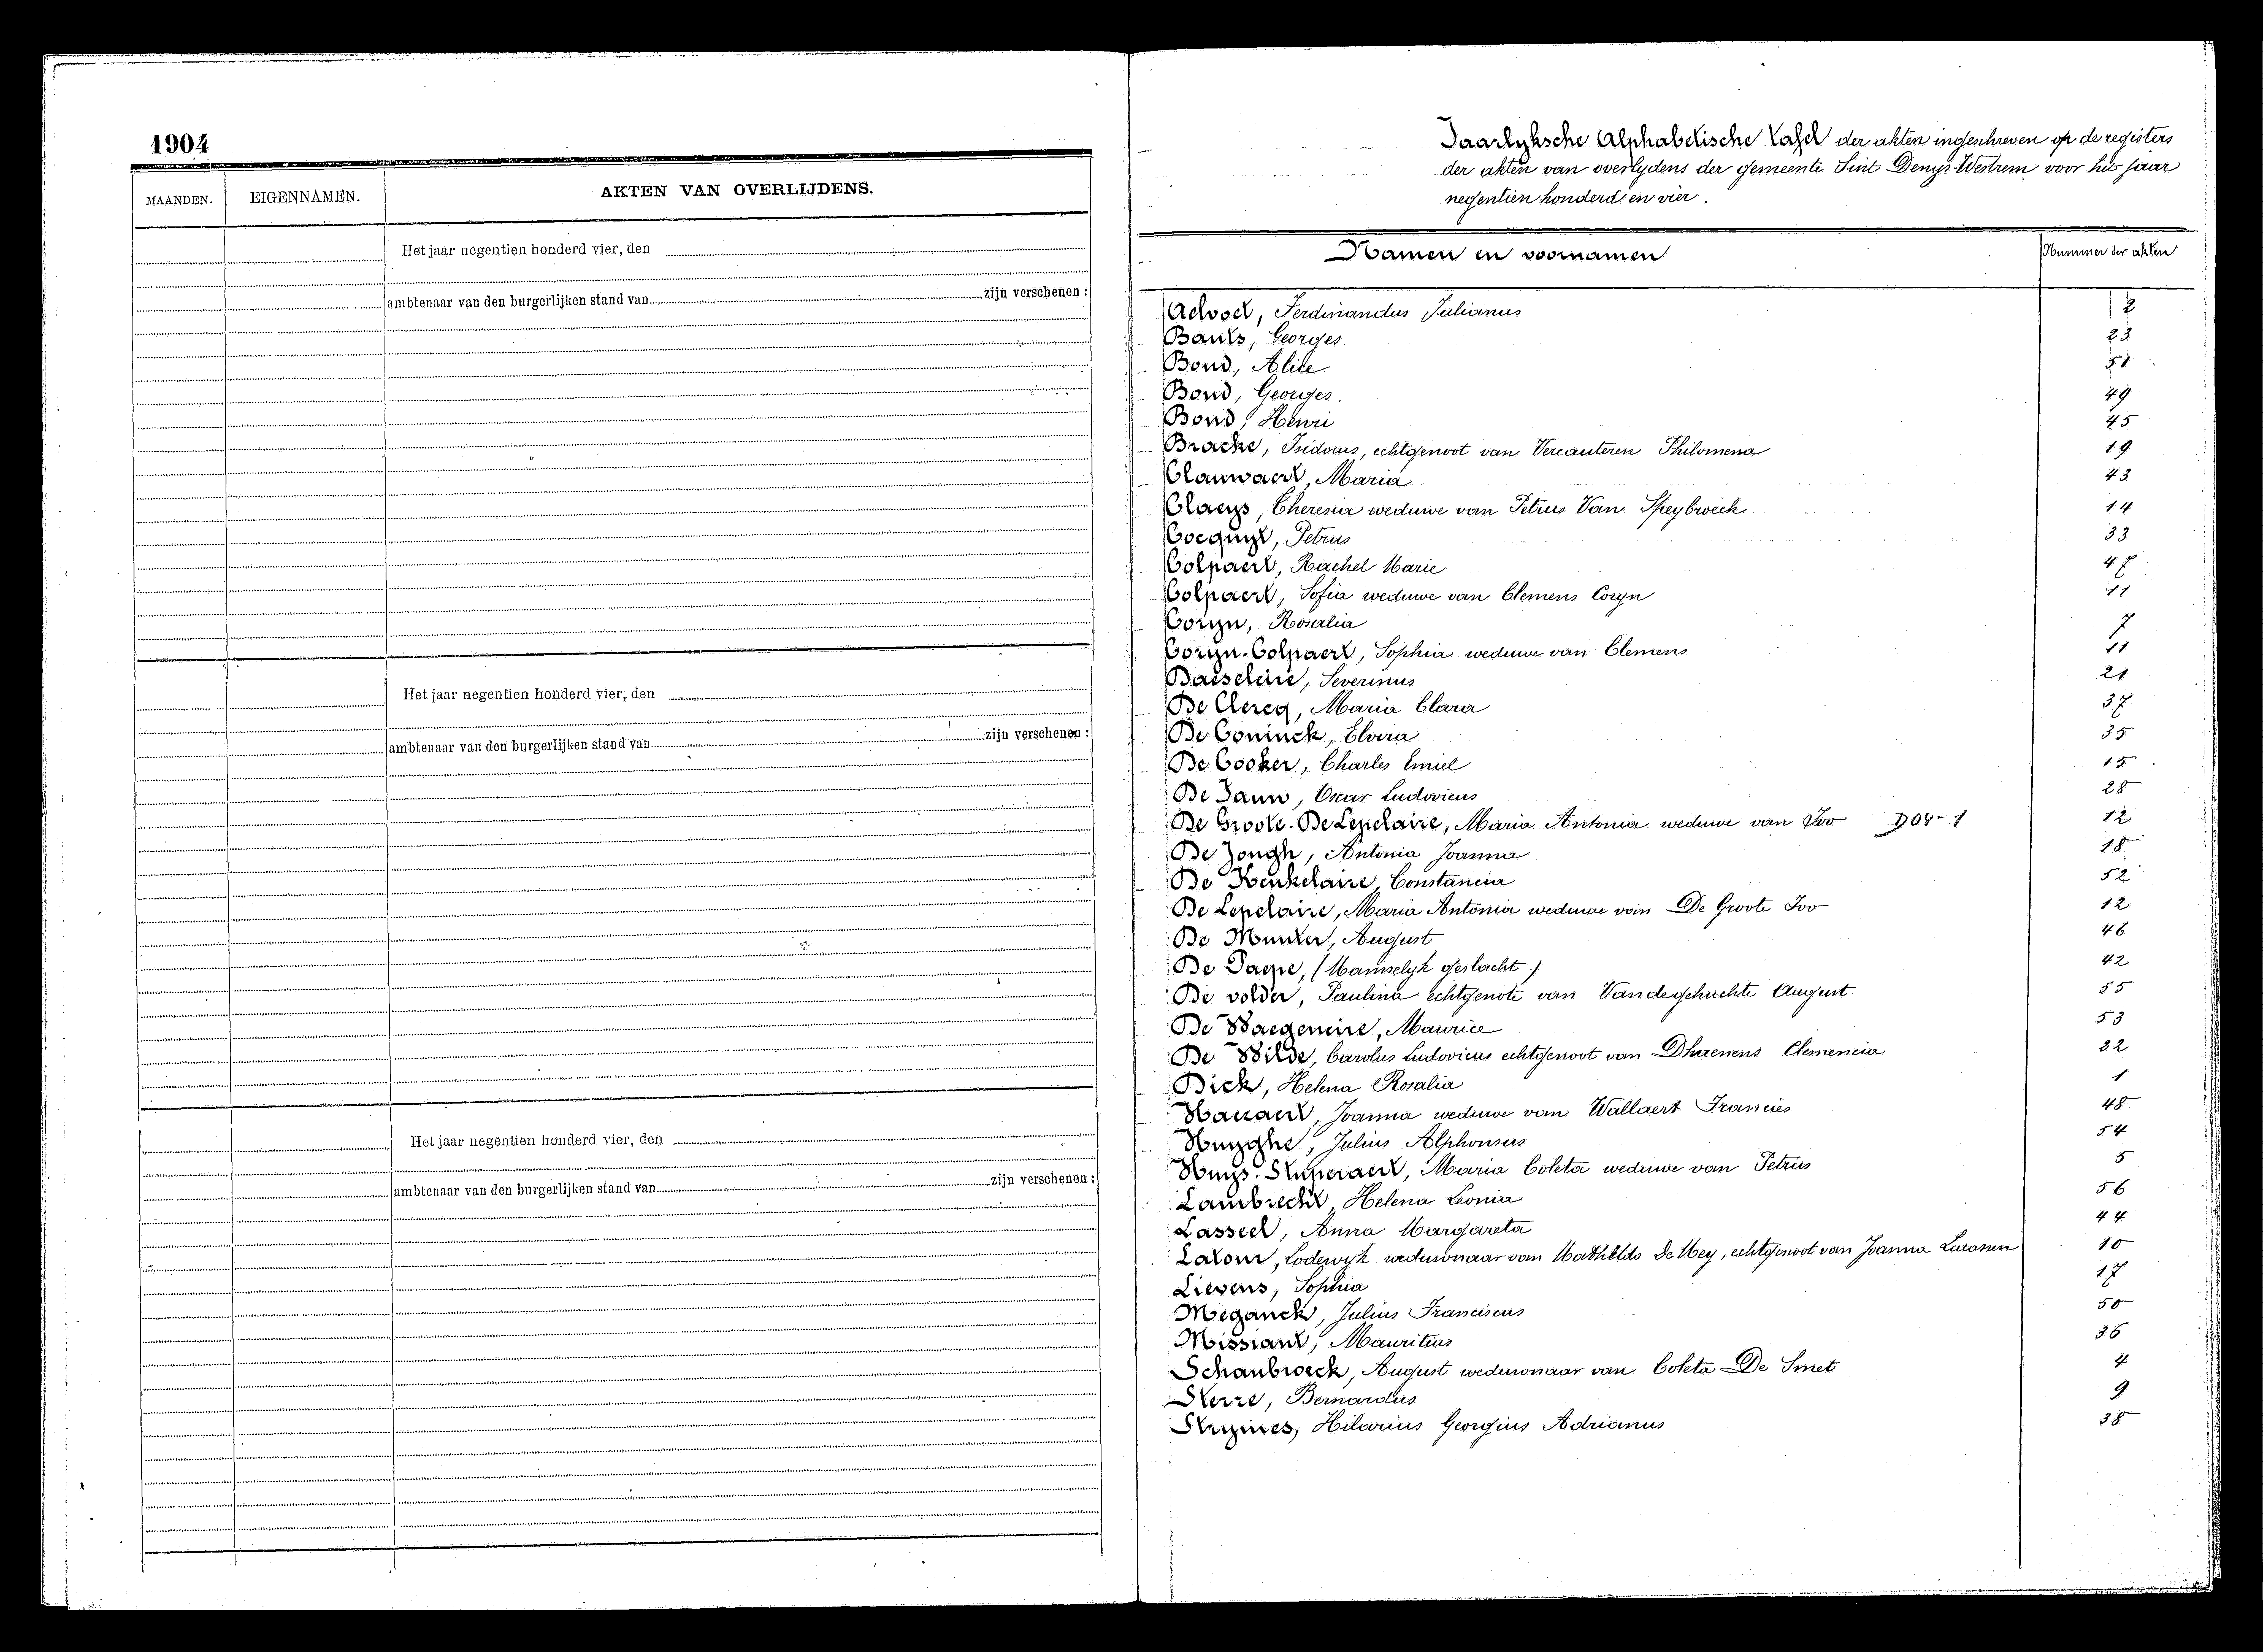 1904
MAANDEN. EIGENNAMEN. AKTEN VAN OVERLIJDENS.
Het jaar negentien honderd vier, den
ambtenaar van den burgerlijken stand van zijn verschenen :
Het jaar negentien honderd vier, den
ambtenaar van den burgerlijken stand van zijn verschenen :
Het jaar negentien honderd vier, den
ambtenaar van den burgerlijken stand van zijn verschenen :
Jaarlyksche Alphabetische Tafel der akten ingeschreven op de registers
der akten van overlydens der gemeente Sint Denys-Westrem voor het jaar
negentien honderd en vier.
Namen en voornamen Nummer der akten
Advoet, Ferdinandus Julianus 2
Bauts, Georges 23
Bond, Alice 51
Bond, Georges. 49
Bond, Henri 45
Bracke, Isidorus, echtgenoot van Vercauteren Philomena 19
Clauwaert, Maria 43
Claeys, Theresia weduwe van Petrus Van Speybroeck 14
Cocquyt, Petrus 33
Colpaert, Rachel Marie 47
Colpaert, Sofia weduwe van Clemens Coryn 11
Coryn, Rosalia 7
Coryn-Colpaert, Sophia weduwe van Clemens 11
Daeseleire, Severinus 21
De Clercq, Maria Clara 37
De Coninck, Elvira 35
De Cooker, Charles Emiel 15
De Gauw, Oscar Ludovicus 28
De Groote-De Lepelaire, Maria Antonia weduwe van Ivo D04-1 12
De Jongh, Antonia Joanna 18
De Keukelaire, Constancia 52
De Lepelaire, Maria Antonia weduwe van De Groote Ivo 12
De Munter, August 46
De Paepe, (Mannelyk geslacht) 42
De volder, Paulina echtgenote van Vandegehuchte August 55
De Waegeneire, Maurice 53
De Wilde, Carolus Ludovicus echtgenoot van Dhaenens Clemencia 32
Dick, Helena Rosalia 1
Joanna weduwe van Wallaert Francies 48
Huyghe, Julius Alphonsus 54
Huys-Stuperaert, Maria Coleta weduwe van Petrus 5
Lambrecht, Helena Leonia 56
Lasseel, Anna Margareta 44
Latour, Lodewyk weduwnaar van Mathilde De Mey, echtgenoot van Joanna Lucassen 10
Lievens, Sophia 17
Meganck, Julius Franciscus 50
Missiant, Mauritius 36
Schaubroeck, August weduwnaar van Coleta De Smet 4
Sterre, Bernardus 9
Strymes, Hilarius Georgius Adrianus 38